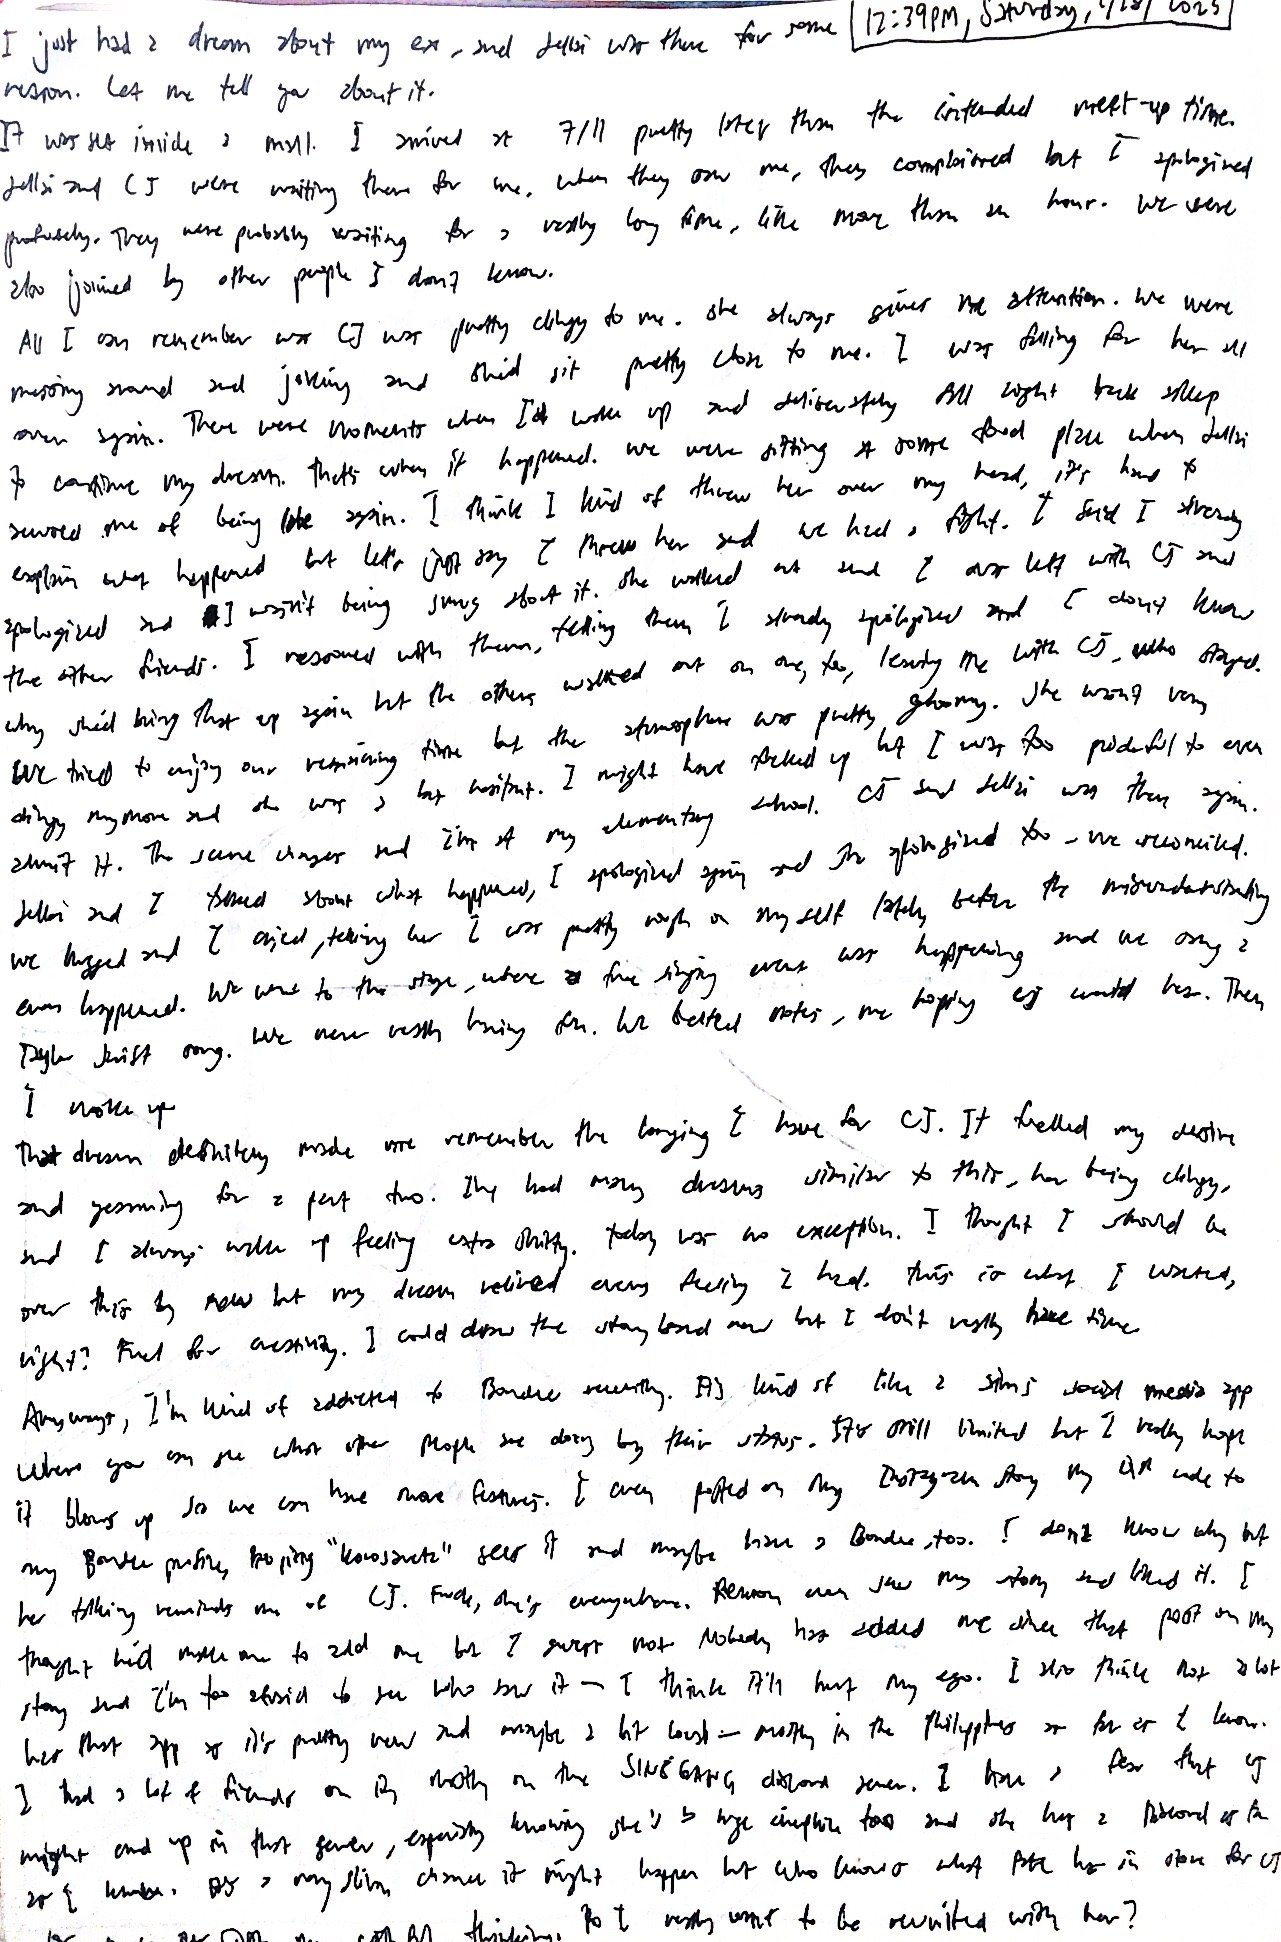 12:39PM, Saturday, 1/28/2023
I just had a dream about my ex, and Jelai was there for some
reason. Let me tell you about it.
It was set inside a mall. I arrived at 7/11 pretty later than the intended meet-up time.
Jelai and CJ were waiting there for me. When they saw me, they complained but I apologized
profusely. They were probably waiting for a really long time, like more than an hour. We were
also joined by other people I don't know.
All I can remember was CJ was pretty clingy to me. She always gives me attention. We were
messing around and joking and she'd sit pretty close to me. I was falling for her all
over again. There were moments when I'd woke up and deliberately fall right back asleep
to continue my dream. That's when it happened. We were sitting at some food place when Jelai
accused me of being late again. I think I kind of threw her over my head, it's hard to
explain what happened but let's just say I threw her and we had a fight. I said I already
apologized and I wasn't being smug about it. She walked out and I was left with CJ and
the other friends. I reasoned with them, telling them I already apologized and I don't know
why she'd bring that up again but the others walked out on me, too, leaving me with CJ, who stayed.
We tried to enjoy our remaining time but the atmosphere was pretty gloomy. She wasn't very
clingy anymore and she was a bit hesitant. I might have fucked up but I was too prideful to even
admit it. The scene changes and I'm at my elementary school. CJ and Jelai was there again.
Jelai and I talked about what happened, I apologized again and she apologized too - we reconciled.
We hugged and I cried, telling her I was pretty rough on myself lately before the misunderstanding
even happened. We went to the stage, where a free singing event was happening and we sang a
Taylor Swift song. We were really having fun. We belted notes, me hoping CJ would hear. Then
I woke up
That dream definitely made me remember the longing I have for CJ. It fuelled my desire
and yearning for a part two. I've had many dreams similar to this, her being clingy,
and I always wake up feeling extra shitty. Today was no exception. I thought I should be
over this by now but my dream relived every feeling I had. This is what I wanted,
right? Fuel for creativity. I could draw the storyboard now but I don't really have time
Anyways, I'm kind of addicted to Bondee recently. It's kind of like a sims social media app
where you can see what other people are doing by their status. It's still limited but I really hope
it blows up so we can have more features. I even posted on my Instagram story my QR code to
my Bondee profile, hoping "" sees it and maybe have a Bondee, too. I don't know why but
her talking reminds me of CJ. Fuck, she's everywhere. even saw my story and liked it. I
thought he'd make one to add me but I guess not. Nobody has added me since that post on my
story and I'm too afraid to see who saw it — I think it'll hurt my ego. I also think not a lot
has that app as it's pretty new and maybe a bit local — mostly in the Philippines as far as I know.
I had a lot of friends on it, mostly on the discord server. I have a fear that CJ
might end up in that server, especially knowing she's a huge too and she has a Discord as far
as I know. It's a very slim chance it might happen but who knows what fate has in store for us
thinking. Do I really want to be reunited with her?